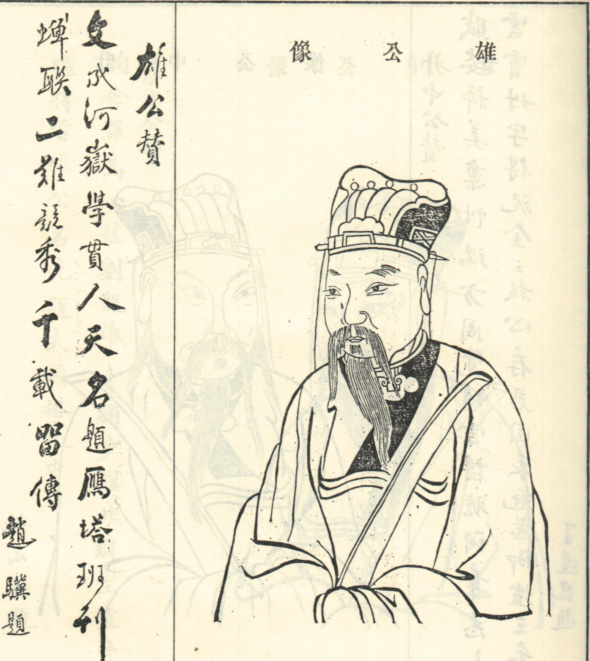 雄公像
雄公贊
文成河嶽學貫人天名題鴈塔班列
蟬聯二難競秀千載留傳
趙驥題